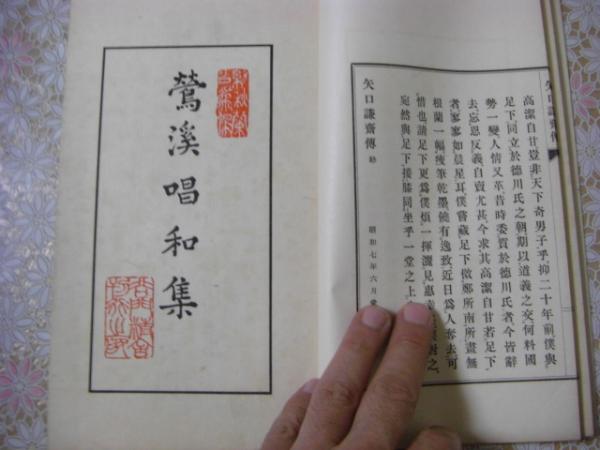 矢口謙齋傳
高潔自甘豈非天下奇男子乎抑二十年前僕與
足下同立於德川氏之朝期以道義之交何料國
勢一變人情又革昔時委質於德川氏者今皆辭
去忘恩反義自賣尤甚今求其高潔自甘若足下
者寥寥如晨星耳僕嘗藏足下傚鄭所南所畫無
根蘭一幅疎筆乾墨饒有逸致近日爲人奪去可
惜也請足下更爲僕煩一揮灑見惠
宛然與足下接膝同坐乎一堂之上
昭和七年六月
矢口謙齋傳
鶯溪唱和集